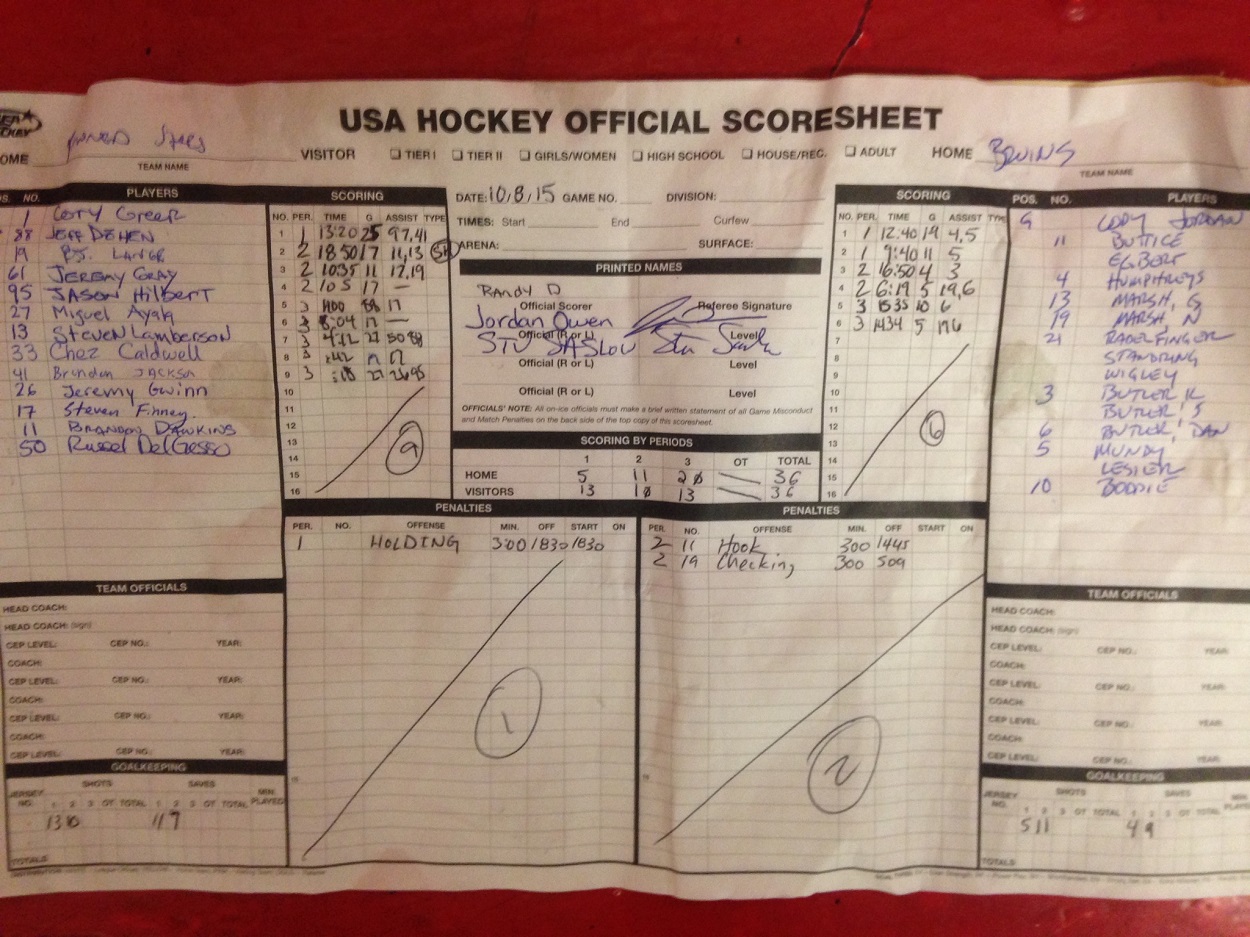 USA HOCKEY OFFICIAL SCORESHEET
Stars
TEAM NAME
VISITOR ☐ TIER I ☐ TIER II ☐ GIRLS/WOMEN ☐ HIGH SCHOOL ☐ HOUSE/REC. ☐ ADULT HOME BRUINS
TEAM NAME
NO. PLAYERS
1 Cory Greer
88 JEFF DEHEN
19 P.J. LANGE
61 JEREMY GRAY
95 JASON Hilbert
27 Miguel Ayala
13 Steven Lamberson
33 Chez Caldwell
41 Brandon JACKSON
26 Jeremy Gwinn
17 Steven Finney
11 BRANDON DAWKINS
50 Russel DelGesso
SCORING
NO. PER. TIME G ASSIST TYPE
1 1 13:20 25 97,41
2 2 18:50 17 11,13 SH
3 2 10:35 11 17,19
4 2 10 5 17 —
5 3
6 3
7 3
8 3
9 3
10
11
12
13
14
15
16
9
DATE: 10,8,15 GAME NO. DIVISION:
TIMES: Start End Curfew
ARENA: SURFACE:
PRINTED NAMES
RANDY D
Official Scorer Referee Signature
Jordan Owen
Official (R or L) Level
STU SASLOW
Official (R or L) Level
Official (R or L) Level
OFFICIALS' NOTE: All on-ice officials must make a brief written statement of all Game Misconduct
and Match Penalties on the back side of the top copy of this scoresheet.
SCORING BY PERIODS
1 2 3 OT TOTAL
HOME 5 11 20 36
VISITORS 13 10 13 36
SCORING
NO. PER. TIME G ASSIST TYPE
1 1 12:40 19 4,5
2 1 9:40 11 5
3 2 16:50 4 3
4 2 6:19 5 19,6
5 3 1535 10 6
6 3 1434 5
7
8
9
10
11
12
13
14
15
16
6
POS. NO. PLAYERS
G CODY JORDAN
11 BUTTICE
EGBERT
4 HUMPHREYS
13 MARSH, G
19 MARSH, N
21 RADELFINGER
STANDRING
WIGLEY
3 BUTLER K
BUTLER, S
6 BUTLER, DAN
5 MUNDY
LESTER
10 BODDIE
PENALTIES
PER. NO. OFFENSE MIN. OFF START ON
1 HOLDING 3:00 1830 1830
1
PENALTIES
PER. NO. OFFENSE MIN. OFF START ON
2 11 Hook 300 1445
2 19 Checking 300 509
2
TEAM OFFICIALS
HEAD COACH:
HEAD COACH: (sign)
CEP LEVEL: CEP NO.: YEAR:
COACH:
CEP LEVEL: CEP NO.: YEAR:
COACH:
CEP LEVEL: CEP NO.: YEAR:
COACH:
CEP LEVEL: CEP NO.: YEAR:
GOALKEEPING
JERSEY NO. SHOTS SAVES MIN. PLAYED
1 2 3 OT TOTAL 1 2 3 OT TOTAL
13 10 11 7
TOTALS
TEAM OFFICIALS
HEAD COACH:
HEAD COACH: (sign)
CEP LEVEL: CEP NO.: YEAR:
COACH:
CEP LEVEL: CEP NO.: YEAR:
COACH:
CEP LEVEL: CEP NO.: YEAR:
COACH:
CEP LEVEL: CEP NO.: YEAR:
GOALKEEPING
JERSEY NO. SHOTS SAVES MIN.
1 2 3 OT TOTAL 1 2 3 OT TOTAL
5 11 4 9
TOTALS